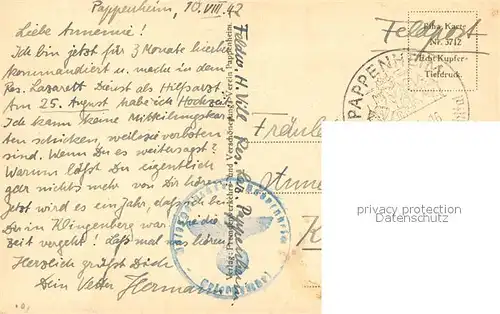 Pappenheim, 10.VIII.42
Liebe Annemie!
Ich bin jetzt für 3 Monate hierher
kommandiert u. mache in dem
Res. Lazarett Dienst als Hilfsarzt.
Am 25. August habe ich Hochzeit.
Ich kann keine Mitteilungskar
ten schicken, weil sie verboten
sind. Wenn Du es weitersagst?
Warum läßt Du eigentlich
gar nichts mehr von Dir hören?
Jetzt wird es ein Jahr, daß ich bei
Dir in Klingenberg war. Wie die
Zeit vergeht! Laß mal was hören.
Herzlich grüßt Dich
Dein Vetter Hermann
Verlag: Fremdenverkehrs- und Verschönerungs-Verein Pappenheim.
Feldpost
Riha-Karte
Nr. 3712
Echt Kupfer-
Tiefdruck.
PAPPENHEIM
Fräulein
privacy protection
Datenschutz